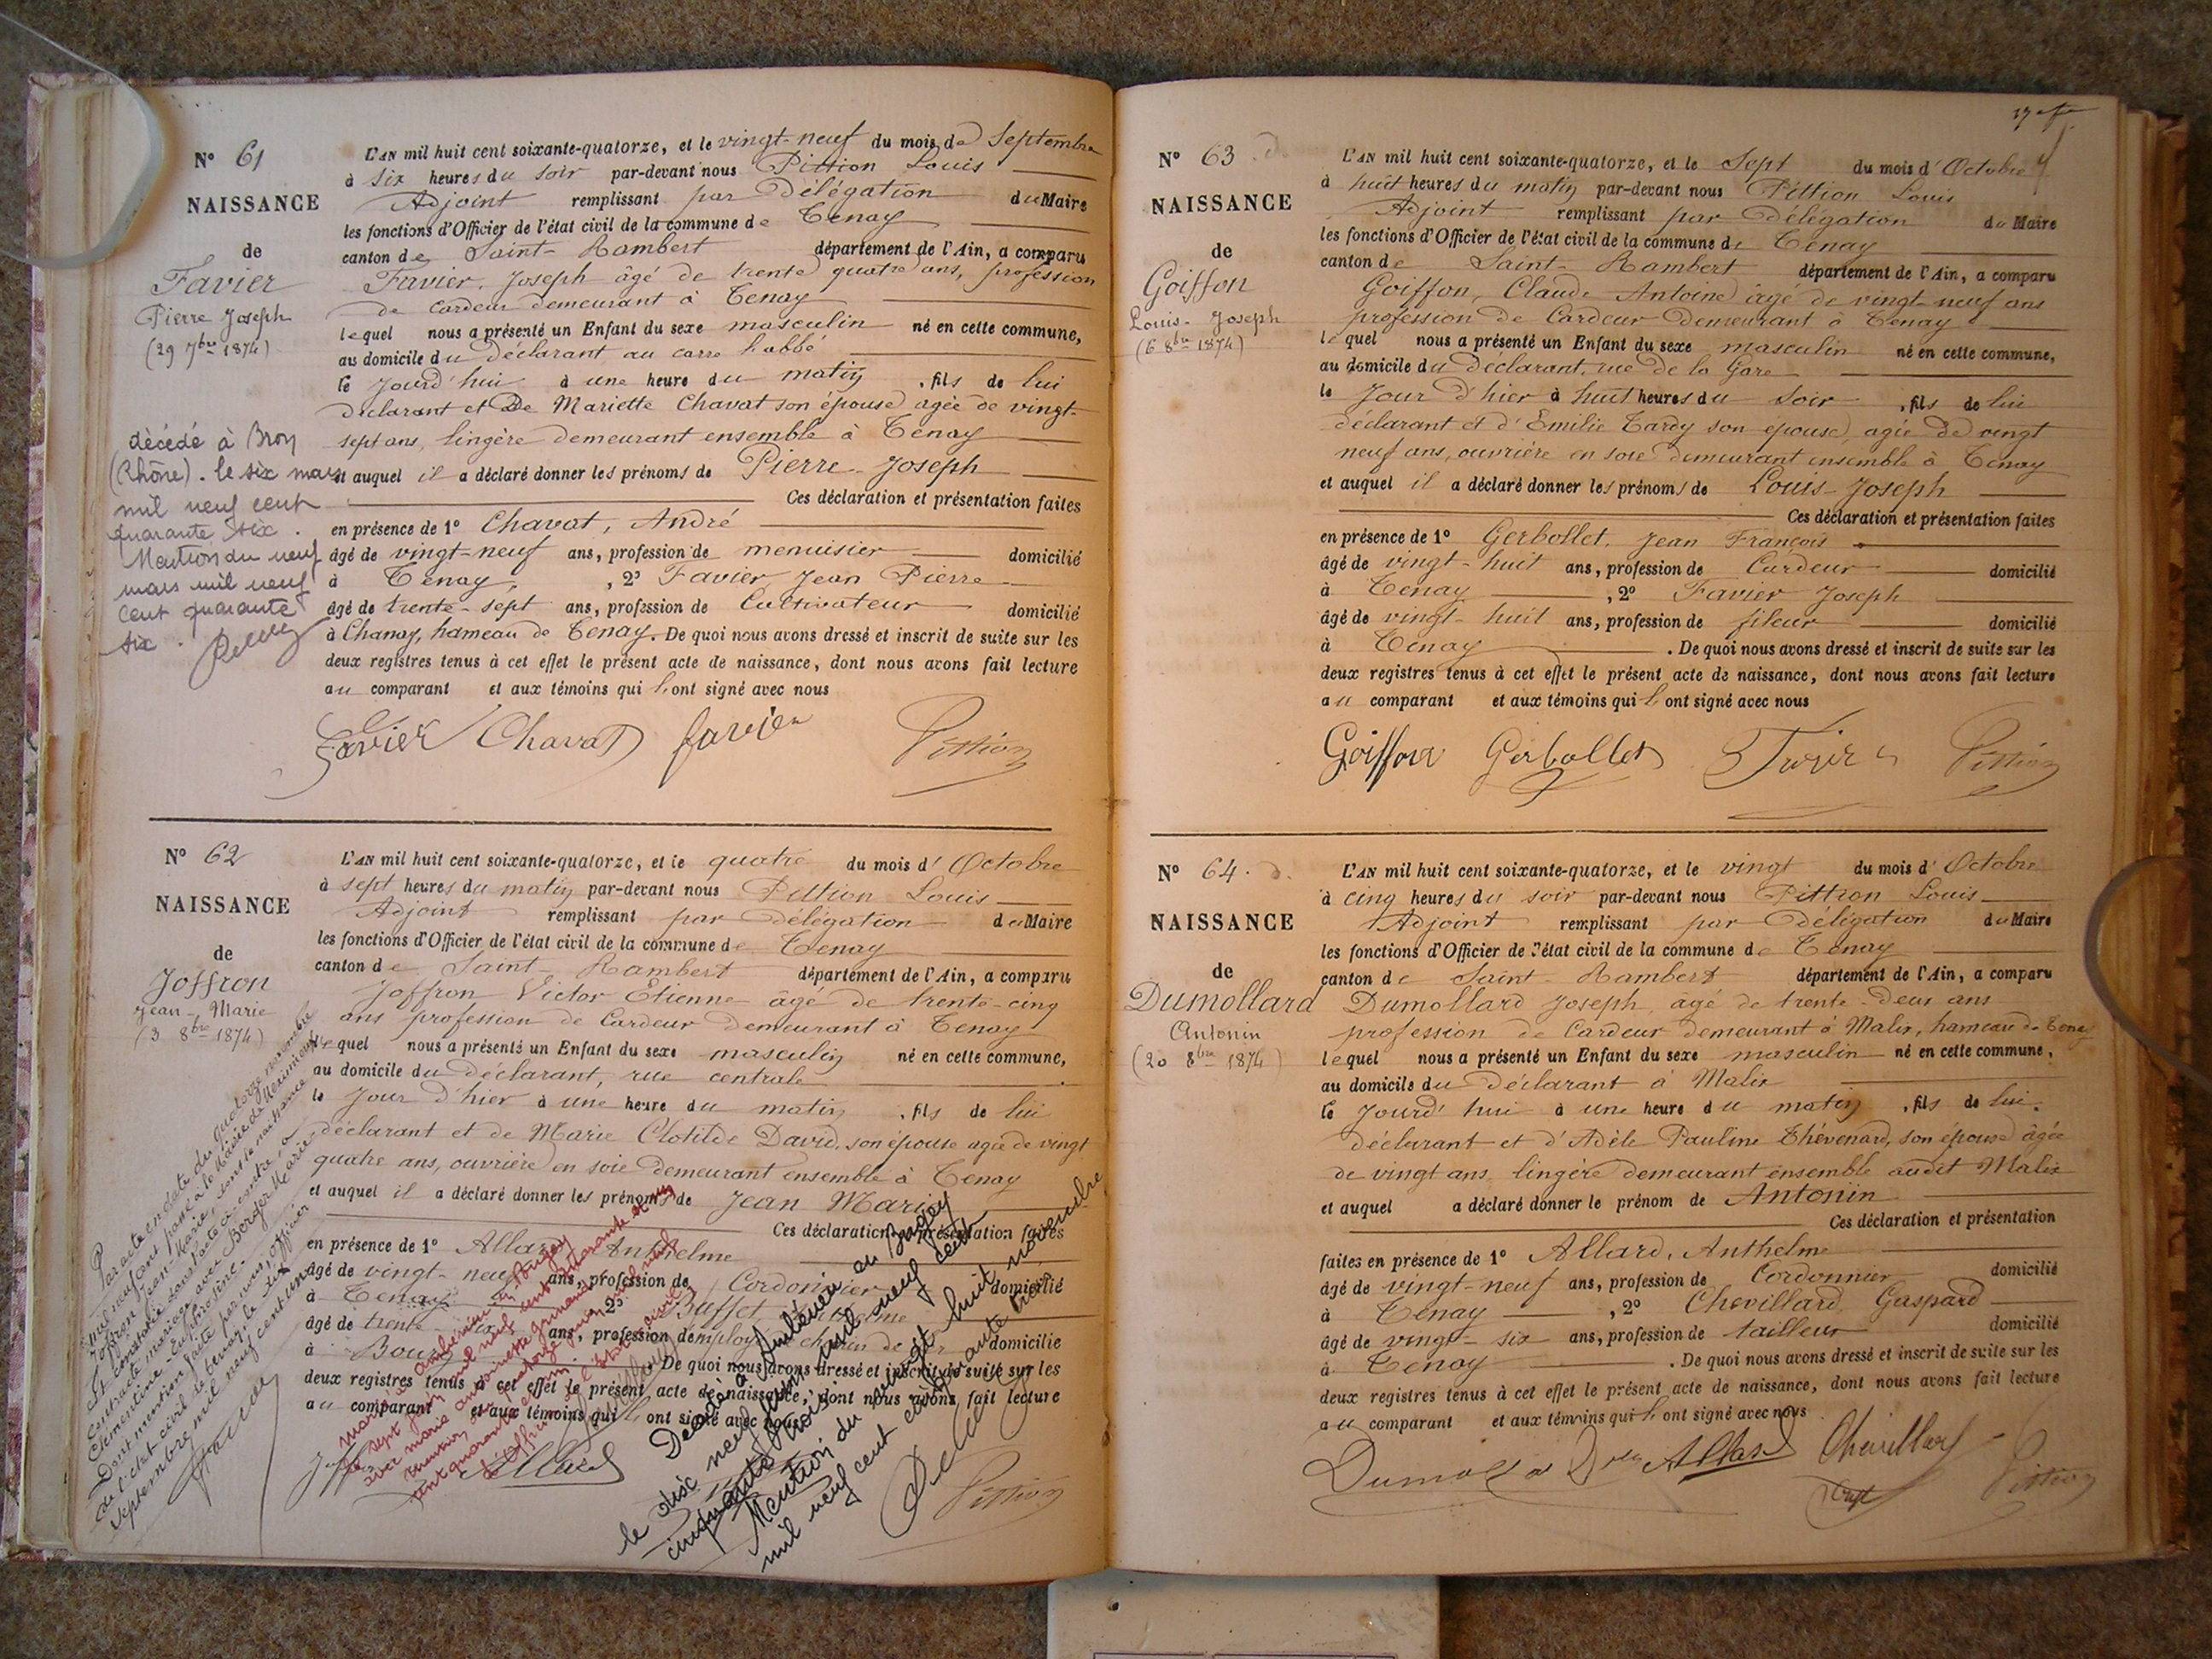 N° 61
NAISSANCE
de
Favier
Pierre Joseph
(29 7bre 1874)
décédé à Bron
(Rhône). le six mars
mil neuf cent
quarante six.
Mention du neuf
mars mil neuf
cent quarante
six.
L'AN mil huit cent soixante-quatorze, et le vingt-neuf du mois de Septembre
à Six heures du soir par-devant nous Pittion Louis
Adjoint remplissant par Délégation du Maire
les fonctions d'Officier de l'état civil de la commune de Tenay
canton de Saint-Rambert département de l'Ain, a comparu
Favier, Joseph âgé de trente quatre ans, profession
de cardeur demeurant à Tenay
lequel nous a présenté un Enfant du sexe masculin né en cette commune,
au domicile du déclarant au carre l'abbé
le jourd'hui à une heure du matin, fils de lui
déclarant et de Mariette Chavat son épouse agée de vingt-
sept ans, lingère demeurant ensemble à Tenay
et auquel il a déclaré donner les prénoms de Pierre-Joseph
Ces déclaration et présentation faites
en présence de 1° Chavat, André
âgé de vingt-neuf ans, profession de menuisier domicilié
à Tenay, 2° Favier Jean Pierre
âgé de trente-sept ans, profession de Cultivateur domicilié
à Chanay, hameau de Tenay. De quoi nous avons dressé et inscrit de suite sur les
deux registres tenus à cet effet le présent acte de naissance, dont nous avons fait lecture
au comparant et aux témoins qui l'ont signé avec nous
Favier Chavat favier Pittion
N° 62
NAISSANCE
de
Joffron
Jean-Marie
(3 8bre 1874)
L'AN mil huit cent soixante-quatorze, et le quatre du mois d'Octobre
à sept heures du matin par-devant nous Pittion Louis
Adjoint remplissant par délégation du Maire
les fonctions d'Officier de l'état civil de la commune de Tenay
canton de Saint-Rambert département de l'Ain, a comparu
Joffron Victor Etienne âgé de trente-cinq
ans profession de Cardeur demeurant à Tenay
lequel nous a présenté un Enfant du sexe masculin né en cette commune,
au domicile du déclarant, rue centrale
le jour d'hier à une heure du matin, fils de lui
déclarant et de Marie Clotilde David, son épouse agée de vingt
quatre ans, ouvrière en soie demeurant ensemble à Tenay
et auquel il a déclaré donner les prénoms de Jean Marie
Ces déclaration et présentation faites
en présence de 1° Allard Anthelme
âgé de vingt-neuf ans, profession de Cordonnier domicilié
à Tenay 2° Buffet
âgé de trente-six ans, profession d'employé chemin de fer domicilié
à Bourg De quoi nous avons dressé et inscrit de suite sur les
deux registres tenus à cet effet le présent acte de naissance, dont nous avons fait lecture
au comparant et aux témoins qui l'ont signé avec nous
Allard
Pittion
Par acte en date du quatorze novembre
Joffron Jean-Marie,
contracté mariage avec Berger Marie
Clémentine-Euphrosine.
Dont mention faite par nous, officier
de l'état civil de Tenay, le dix
Septembre mil neuf cent un.
marié à Ambérieu en Bugey
Décédé à Ambérieu en Bugey
le six neuf juin mil neuf cent
cinquante trois
Mention du vingt huit novembre
mil neuf cent cinquante trois
N° 63
NAISSANCE
de
Goiffon
Louis-Joseph
(6 8bre 1874)
L'AN mil huit cent soixante-quatorze, et le Sept du mois d'Octobre
à huit heures du matin par-devant nous Pittion Louis
Adjoint remplissant par Délégation du Maire
les fonctions d'Officier de l'état civil de la commune de Tenay
canton de Saint-Rambert département de l'Ain, a comparu
Goiffon, Claude Antoine âgé de vingt-neuf ans
profession de Cardeur demeurant à Tenay
lequel nous a présenté un Enfant du sexe masculin né en cette commune,
au domicile du déclarant, rue de la Gare
le Jour d'hier à huit heures du soir, fils de lui
déclarant et d'Emilie Tardy son épouse, agée de vingt
neuf ans, ouvrière en soie demeurant ensemble à Tenay
et auquel il a déclaré donner les prénoms de Louis-Joseph
Ces déclaration et présentation faites
en présence de 1° Gerbollet, Jean François
âgé de vingt-huit ans, profession de Cardeur domicilié
à Tenay, 2° Favier Joseph
âgé de vingt-huit ans, profession de fileur domicilié
à Tenay. De quoi nous avons dressé et inscrit de suite sur les
deux registres tenus à cet effet le présent acte de naissance, dont nous avons fait lecture
au comparant et aux témoins qui l'ont signé avec nous
Goiffon Gerbollet Pittion
N° 64
NAISSANCE
de
Dumollard
Antonin
(20 8bre 1874)
L'AN mil huit cent soixante-quatorze, et le vingt du mois d'Octobre
à cinq heures du soir par-devant nous Pittion Louis
Adjoint remplissant par Délégation du Maire
les fonctions d'Officier de l'état civil de la commune de Tenay
canton de Saint-Rambert département de l'Ain, a comparu
Dumollard Joseph, agé de trente-deux ans
profession de Cardeur demeurant à Malix, hameau de Tenay
lequel nous a présenté un Enfant du sexe masculin né en cette commune,
au domicile du déclarant à Malix
le Jourd'hui à une heure du matin, fils de lui.
déclarant et d'Adèle Pauline Thévenard, son épouse âgée
de vingt ans, lingère demeurant ensemble audit Malix
et auquel a déclaré donner le prénom de Antonin
Ces déclaration et présentation
faites en présence de 1° Allard, Anthelme
âgé de vingt-neuf ans, profession de Cordonnier domicilié
à Tenay, 2° Chevillard Gaspard
âgé de vingt-six ans, profession de tailleur domicilié
à Tenay. De quoi nous avons dressé et inscrit de suite sur les
deux registres tenus à cet effet le présent acte de naissance, dont nous avons fait lecture
au comparant et aux témoins qui l'ont signé avec nous
Allard Chevillard Pittion